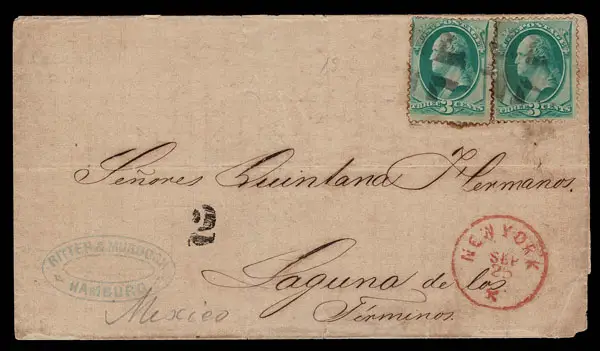 U.S. POSTAGE
THREE 3 CENTS
THREE 3 CENTS
Señores Quintana Hermanos.
2
RITTER & MURDOCH
HAMBURG
NEW YORK
SEP
25
Laguna de los
Términos.
Mexico